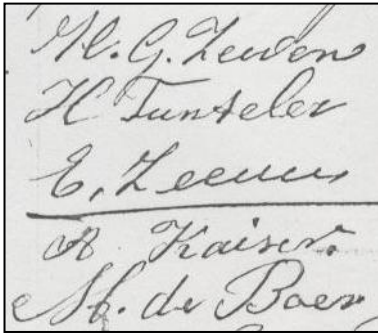 H. G. Leeven
H Tunteler
E. Zeeuw
A Kaiser.
M. de Boer